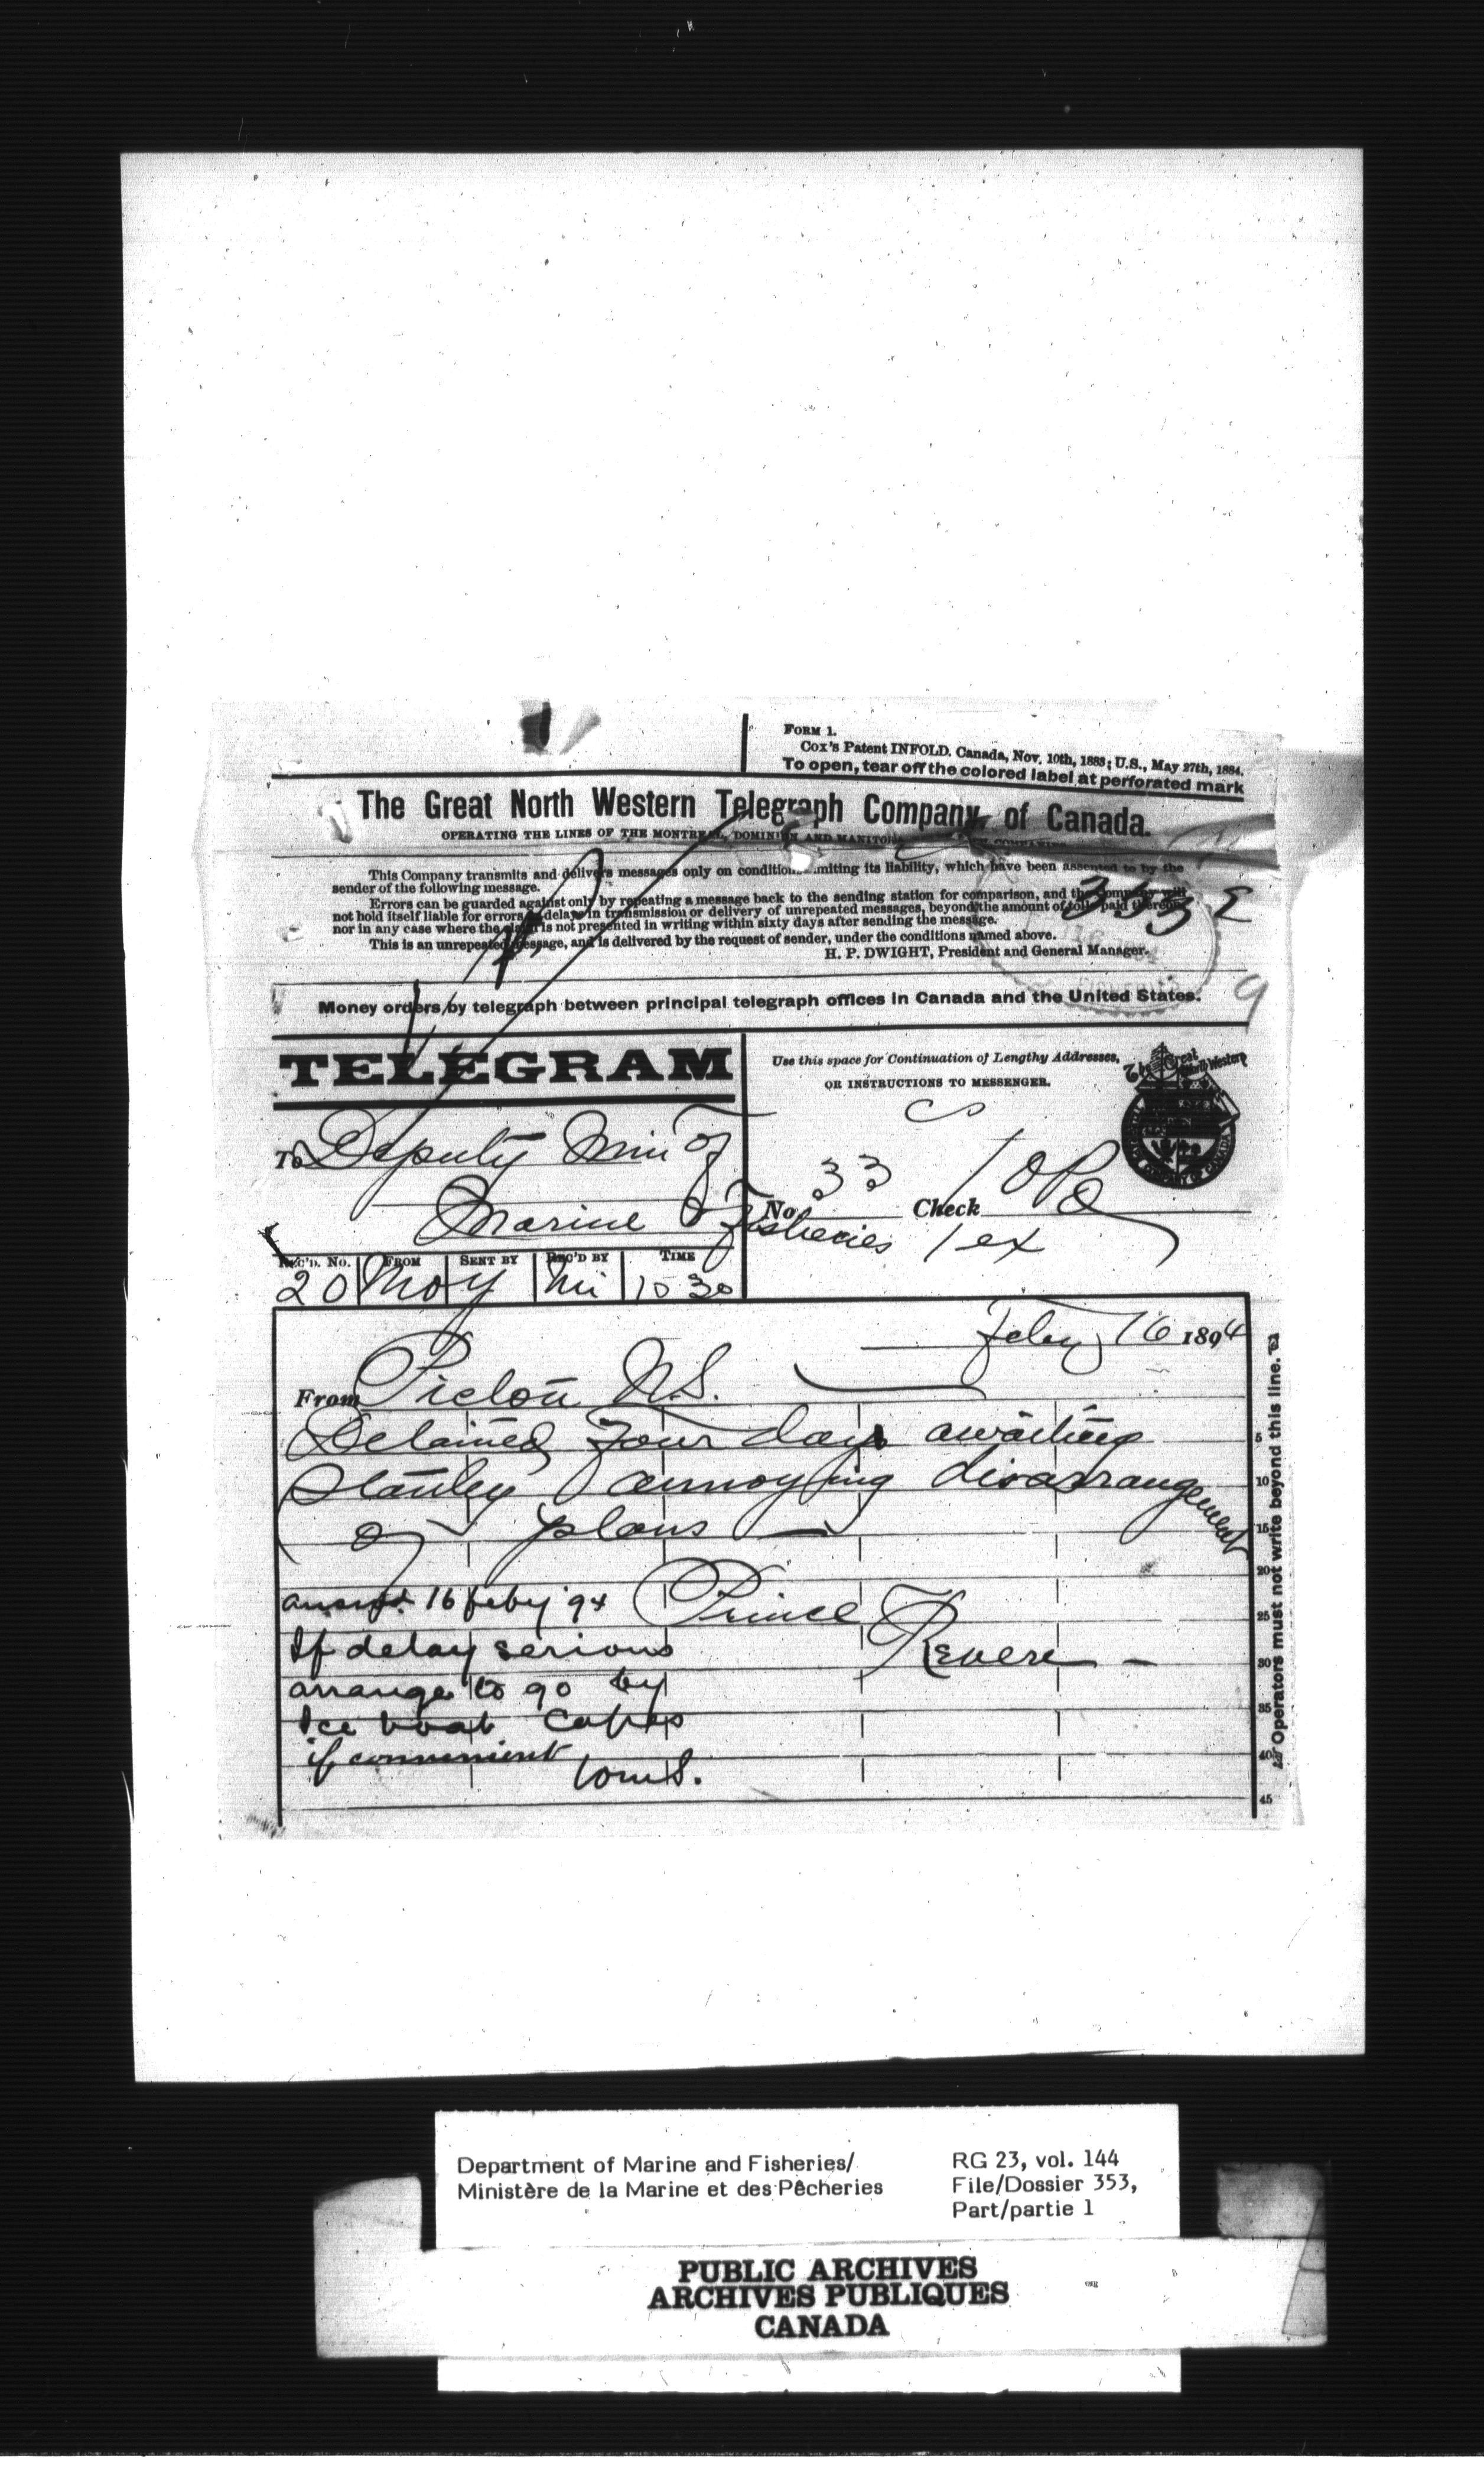 FORM 1.
Cox's Patent INFOLD. Canada, Nov. 10th, 1883; U.S., May 27th, 1884.
To open, tear off the colored label at perforated mark
The Great North Western Telegraph Company, of Canada.
OPERATING THE LINES OF THE MONTREAL, DOMINION AND MANITOBA
This Company transmits and delivers messages only on condition miting its liability, which have been assented to by the
sender of the following message.
Errors can be guarded against only by repeating a message back to the sending station for comparison, and the Company will
not hold itself liable for errors delays in transmission or delivery of unrepeated messages, beyond the amount of tolls paid thereon,
nor in any case where the claim is not presented in writing within sixty days after sending the message.
This is an unrepeated message, and is delivered by the request of sender, under the conditions named above.
H. P. DWIGHT, President and General Manager.
353
9
Money orders by telegraph between principal telegraph offices in Canada and the United States.
TELEGRAM
Use this space for Continuation of Lengthy Addresses,
OR INSTRUCTIONS TO MESSENGER.
The Great North Western
To Deputy Min of
Marine & Fisheries
No. 33 Check 10
1 ex
REC'D. No. FROM SENT BY REC'D BY TIME
20 10 30
Feby 16 1894
From Pictou N.S.
Detained Four days awaiting
Stanley annoying disarrangement
of plans —
Prince
Revere —
answd. 16 feby '94
If delay serious
arrange to go by
Ice boat Capes
if convenient
Operators must not write beyond this line.
5
10
15
20
25
30
35
40
45
Department of Marine and Fisheries/
Ministère de la Marine et des Pêcheries
RG 23, vol. 144
File/Dossier 353,
Part/partie 1
PUBLIC ARCHIVES
ARCHIVES PUBLIQUES
CANADA